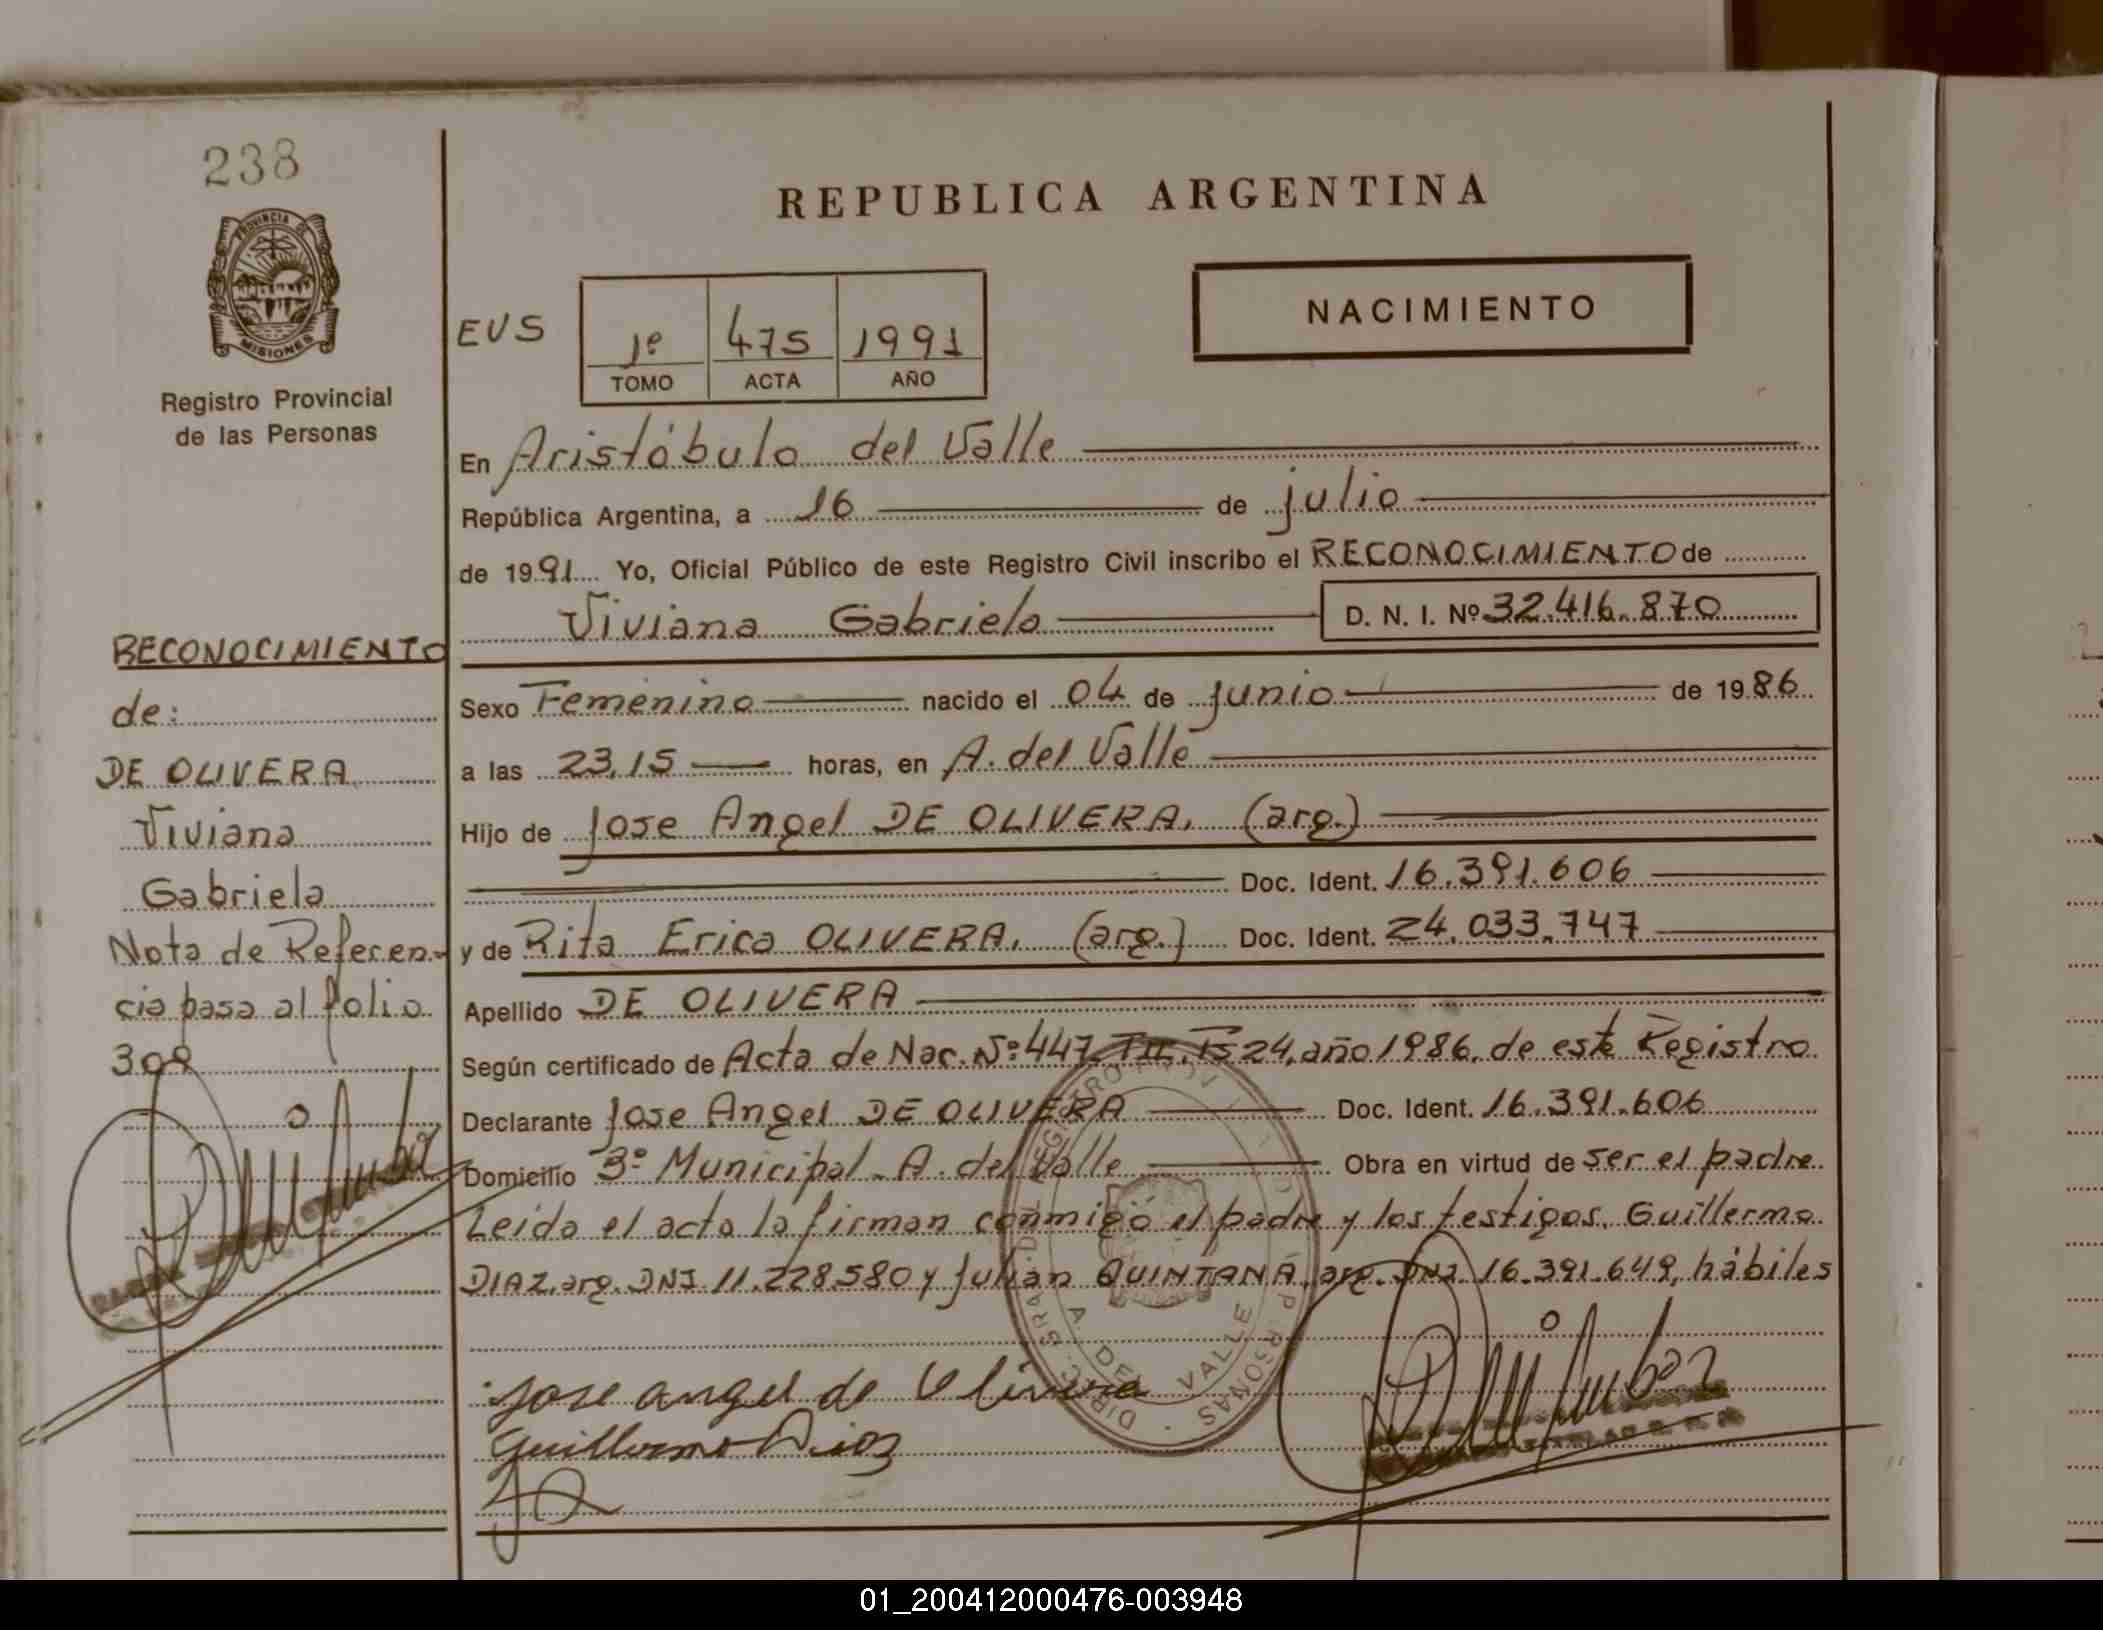 238
PROVINCIA DE
MISIONES
Registro Provincial
de las Personas
REPUBLICA ARGENTINA
NACIMIENTO
EUS
1º 475 1991
TOMO ACTA AÑO
En Aristóbulo del Valle
República Argentina, a 16 de julio
de 1991 Yo, Oficial Público de este Registro Civil inscribo el RECONOCIMIENTO de
Viviana Gabriela D. N. I. Nº 32.416.870
Sexo Femenino nacido el 04 de junio de 1986
a las 23,15 horas, en A. del Valle
Hijo de Jose Angel DE OLIVERA. (arg.)
Doc. Ident. 16.391.606
y de Rita Erica OLIVERA. (arg.) Doc. Ident. 24.033.747
Apellido DE OLIVERA
Según certificado de Acta de Nac. Nº 447, Fº 24, año 1986, de este Registro
Declarante Jose Angel DE OLIVERA Doc. Ident. 16.391.606
Domicilio Bº Municipal - A. del Valle Obra en virtud de ser el padre
Leida el acta la firman conmigo el padre y los testigos, Guillermo
DIAZ, arg. DNI 11.228.580 y Julian QUINTANA, arg. DNI 16.391.649, hábiles
Jose angel de Olivera
Guillermo Diaz
A. DEL VALLE
RECONOCIMIENTO
de:
DE OLIVERA
Viviana
Gabriela
Nota de Referen-
cia pasa al folio
309
01_200412000476-003948